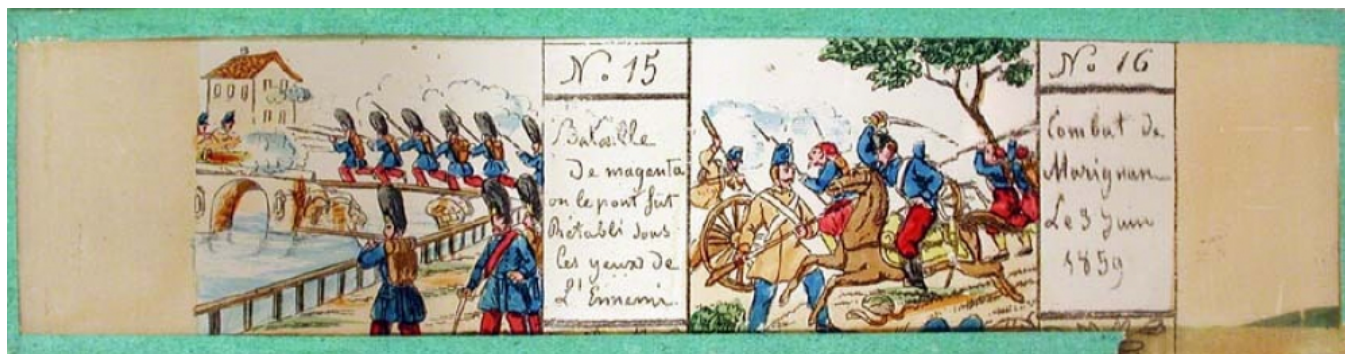 No 15
Bataille
De magenta
ou le pont fut
Rétabli sous
les yeux de
L'Ennemi
No 16
Combat de
Marignan
Le 3 Juin
1859